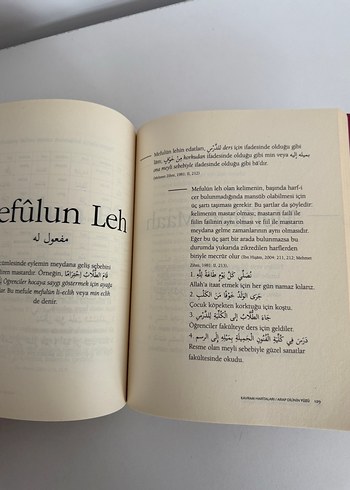 efûlun Leh
مفعول له
cümlesinde eylemin meydana geliş sebebini
lanan mastardır. Örneğin, قَامَ الطُّلَّابُ اِحْتِرَامًا
Öğrenciler hocaya saygı göstermek için ayağa
tır. Bu mefule mefulün li-eclih veya min eclih
de denir.
Mefulün lehin edatları, لِلدَّرْسِ ders için ifadesinde olduğu gibi
lâm, مِنْ خَوْفٍ korkudan ifadesinde olduğu gibi min veya بميله إليه
ona meyli sebebiyle ifadesinde olduğu gibi bâ'dır.
(Mehmed Zihni, 1981: II, 212)
Mefulün leh olan kelimenin, başında harf-i
cer bulunmadığında mansûb olabilmesi için
üç şartı taşıması gerekir. Bu şartlar da şöyledir:
kelimenin mastar olması; mastarın faili ile
fiilin failinin aynı olması ve fiil ile mastarın
meydana gelme zamanlarının aynı olmasıdır.
Eğer bu üç şart bir arada bulunmazsa bu
durumda yukarıda zikredilen harflerden
biriyle mecrûr olur (İbn Hişâm, 2004: 211, 212, Mehmed
Zihni, 1981: II, 213).
١. نُصَلِّي كُلَّ يَوْمٍ طَاعَةً لِلَّهِ
Allah'a itaat etmek için her gün namaz kılarız.
٢. جَرَى الوَلَدُ خَوْفًا مِنَ الكَلْبِ
Çocuk köpekten korktuğu için koştu.
٣. جَاءَ الطُّلَّابُ إِلَى الْكُلِّيَّةِ لِلدَّرْسِ
Öğrenciler fakülteye ders için geldiler.
٤. دَرَسَ فِي كُلِّيَّةِ الفُنُونِ الْجَمِيلَةِ بِمَيْلِهِ إِلَى الرسمِ
Resme olan meyli sebebiyle güzel sanatlar
fakültesinde okudu.
KAVRAM HARİTALARI | ARAP DİLİNİN YÜZÜ 105